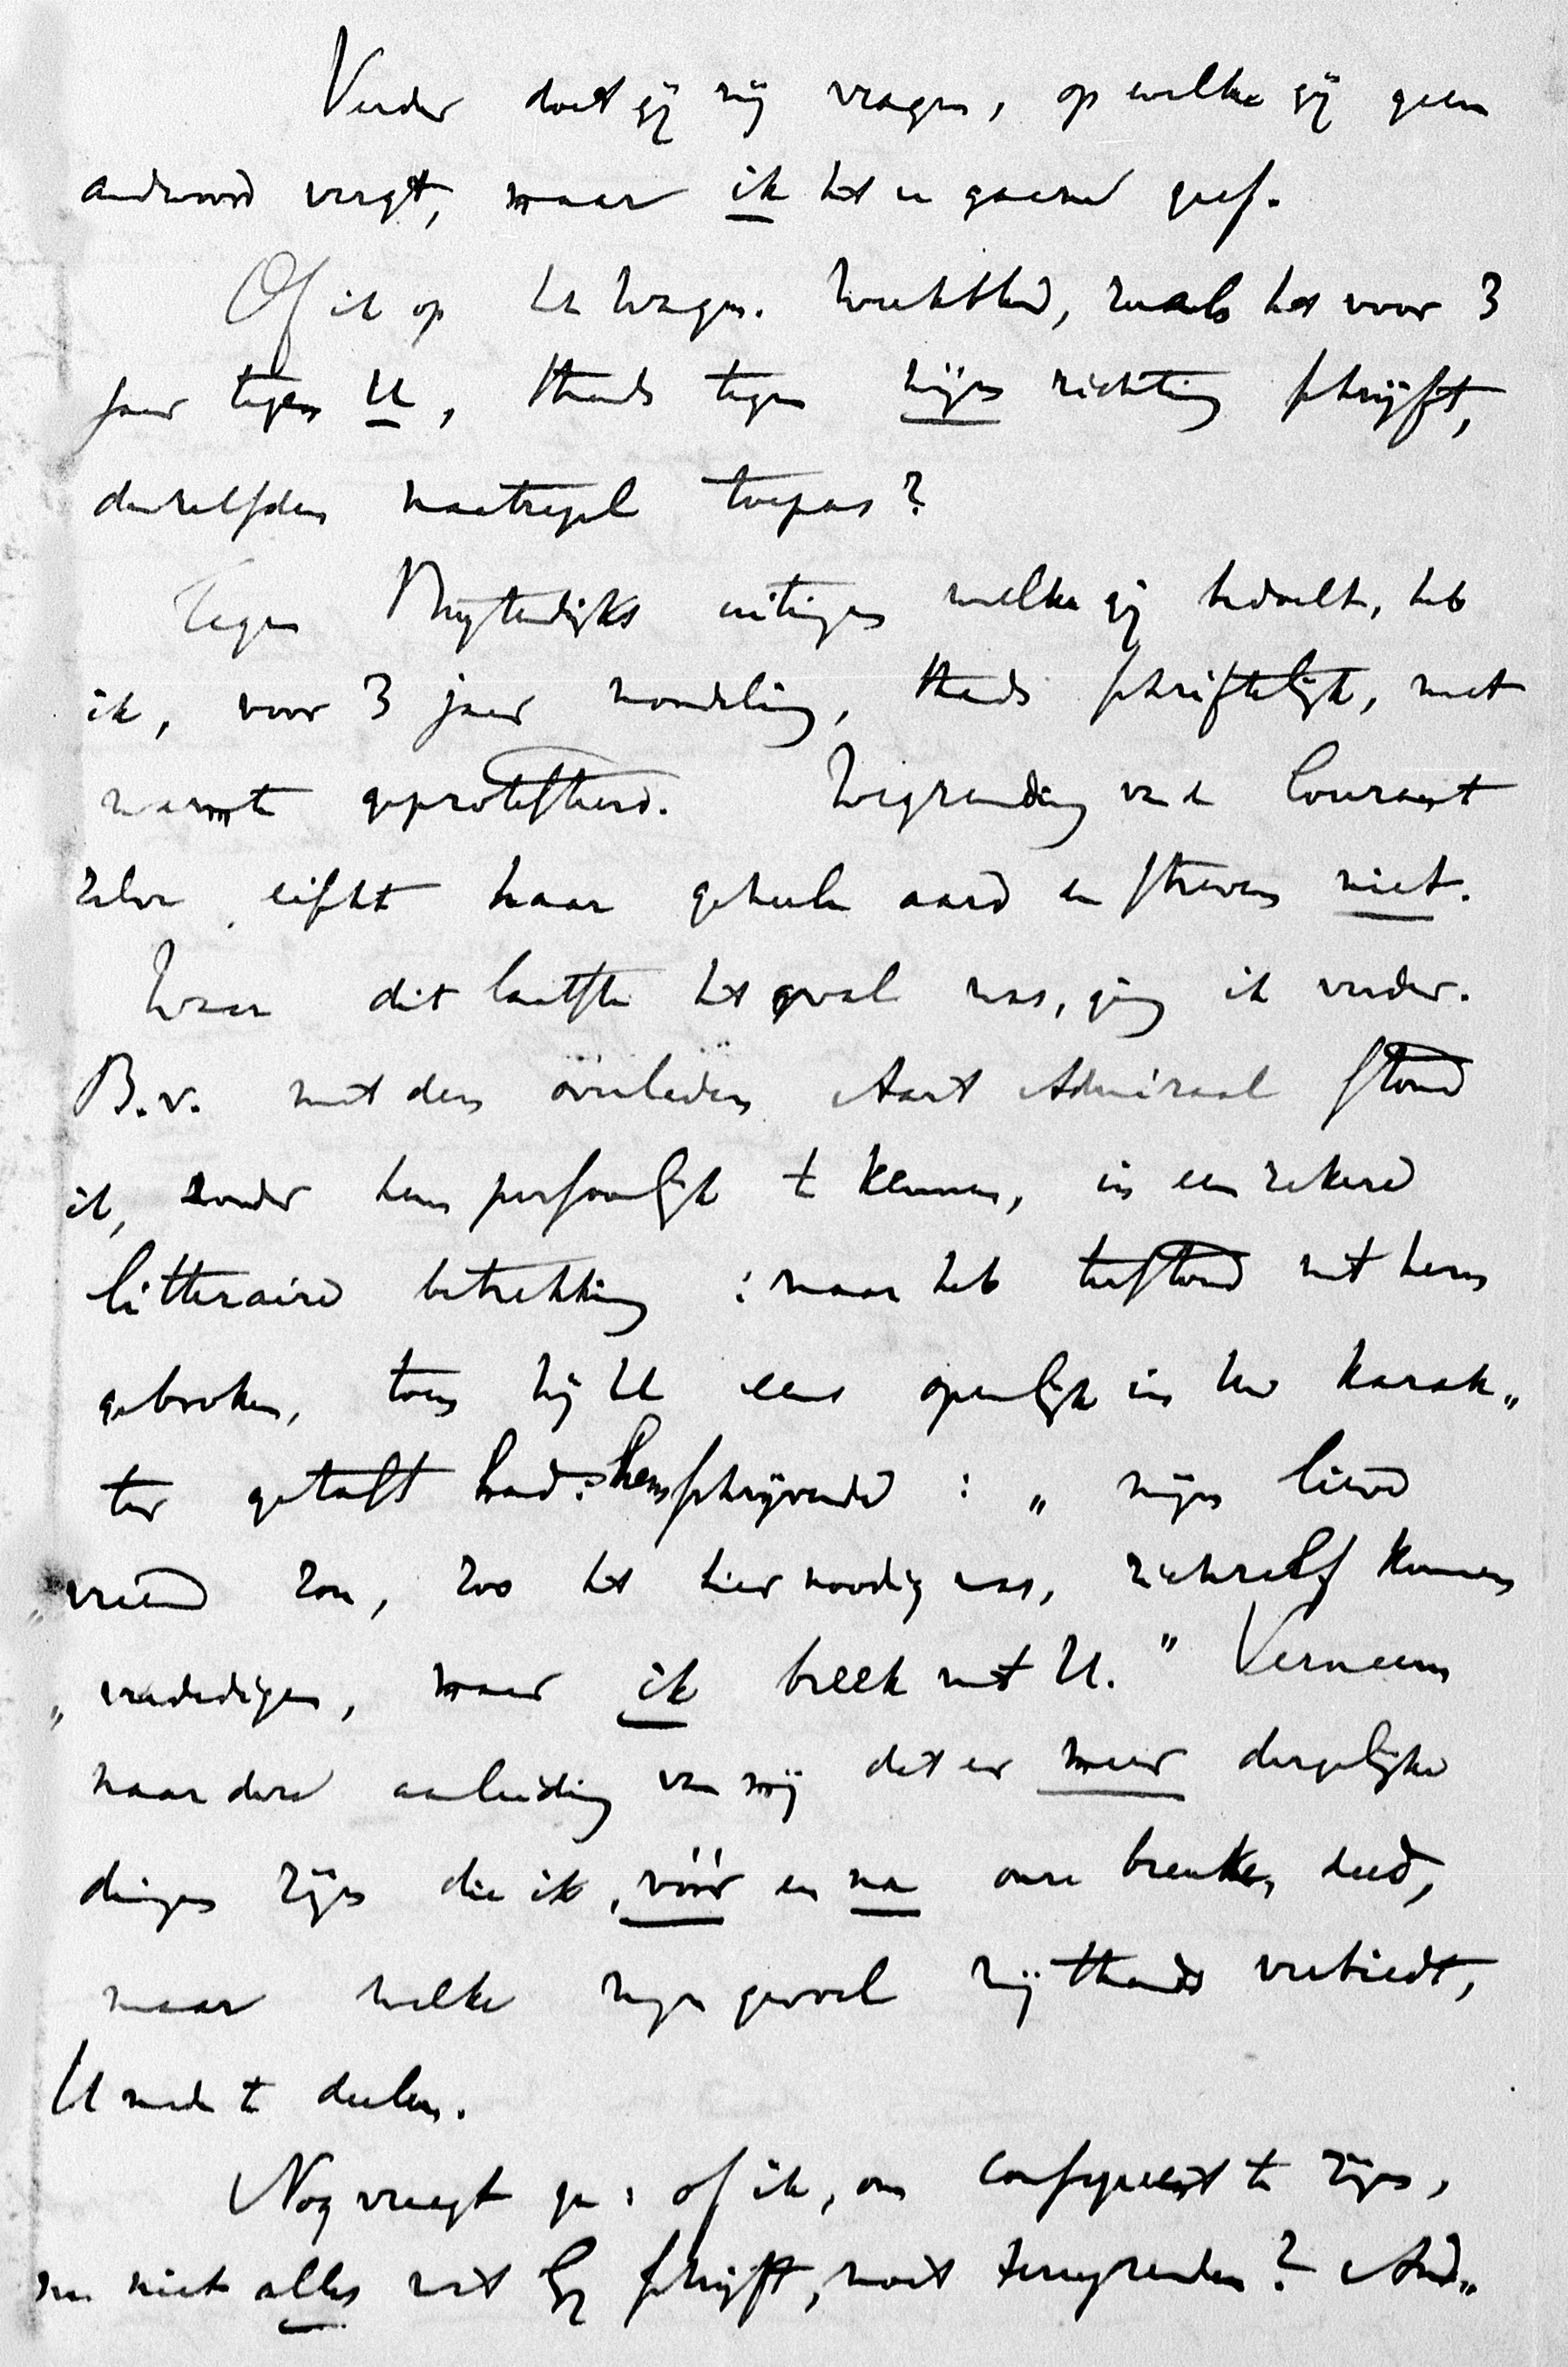 Verder doet gij mij vragen, op welke gij geen
andwoord vergt, maar ik het u gaarne geef.
Of ik op het Wagen. Weekblad, zoals het voor 3
jaar tegen U, thands tegen mijn richting schrijft,
denzelfden maatregel toepas?
Tegen Muytendijks uitingen welke gij bedoelt, heb
ik, voor 3 jaar mondeling, thands schriftelijk, met
warmte geprotesteerd. Wegzending van de Courant
zelve eischt haar geheele aard en streven niet.
Waar dit laatste het geval was, ging ik verder.
B.v. met den overleden Aart Admiraal stond
ik, zonder hem persoonlijk te kennen, in een zekere
litteraire betrekking : maar heb terstond met hem
gebroken, toen hij U eens openlijk in Uw karak„
ter getast had: hem schrijvende : „ mijn lieve
„vriend zou, zoo het hier noodig was, zichzelf kunnen
„ verdedigen, maar ik breek met U." Verneem
naar deze aanleiding van mij dat er meer dergelijke
dingen zijn die ik, vóór en na onze breuke, deed,
maar welke mijn gevoel mij thands verbiedt,
U mede te deelen.
Nog vraagt ge: of ik, om consequent te zijn,
nu niet alles wat Gij schrijft, moet terugzenden? And„